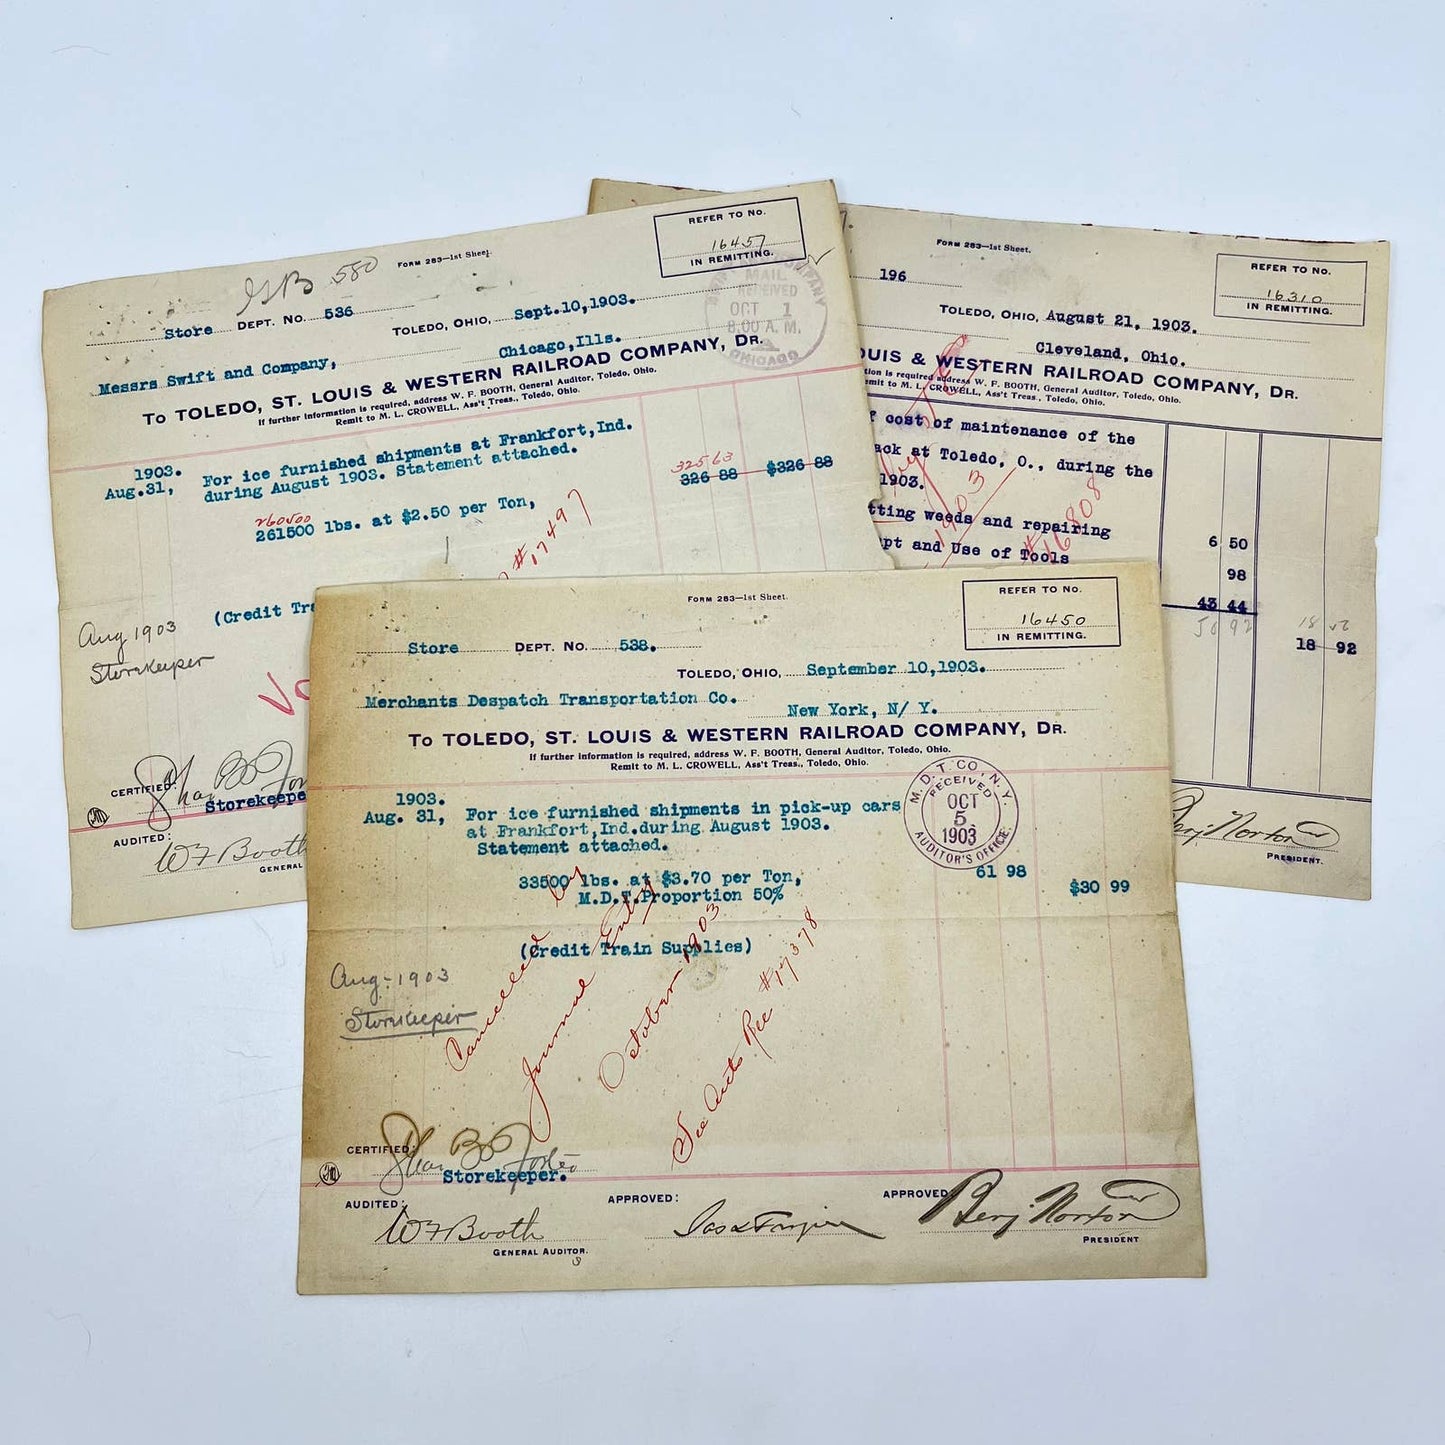 FORM 283—1st Sheet.
REFER TO NO.
16457
IN REMITTING.
580
Store DEPT. NO. 536
TOLEDO, OHIO, Sept.10,1903.
MAIL
RECEIVED
OCT 1
8.00 A.M.
CHICAGO
Messrs Swift and Company, Chicago,Ills.
To TOLEDO, ST. LOUIS & WESTERN RAILROAD COMPANY, DR.
If further information is required, address W. F. BOOTH, General Auditor, Toledo, Ohio.
Remit to M. L. CROWELL, Ass't Treas., Toledo, Ohio.
1903.
Aug.31, For ice furnished shipments at Frankfort,Ind.
during August 1903. Statement attached.
32563
326 88 $326 88
260500
261500 lbs. at $2.50 per Ton,
#17497
(Credit Tra
Aug 1903
Storekeeper
CERTIFIED:
Storekeepe
AUDITED:
W F Booth
GENERAL
FORM 283—1st Sheet.
REFER TO NO.
16310
IN REMITTING.
196
TOLEDO, OHIO, August 21, 1903.
Cleveland, Ohio.
OUIS & WESTERN RAILROAD COMPANY, DR.
ion is required address W. F. BOOTH, General Auditor, Toledo, Ohio.
emit to M. L. CROWELL, Ass't Treas., Toledo, Ohio.
f cost of maintenance of the
ack at Toledo, O., during the
1903.
1903
#16808
tting weeds and repairing 6 50
pt and Use of Tools 98
43 44
50 92
18 92
Benj. Norton
PRESIDENT.
FORM 283—1st Sheet.
REFER TO NO.
16450
IN REMITTING.
Store DEPT. NO. 538.
TOLEDO, OHIO, September 10,1903.
Merchants Despatch Transportation Co.
New York, N/ Y.
To TOLEDO, ST. LOUIS & WESTERN RAILROAD COMPANY, DR.
If further information is required, address W. F. BOOTH, General Auditor, Toledo, Ohio.
Remit to M. L. CROWELL, Ass't Treas., Toledo, Ohio.
M.D.T.CO., N.Y.
RECEIVED
OCT
5
1903
AUDITOR'S OFFICE.
1903.
Aug. 31, For ice furnished shipments in pick-up cars
at Frankfort,Ind.during August 1903.
Statement attached.
61 98
33500 lbs. at $3.70 per Ton,
M.D.T.Proportion 50% $30 99
(Credit Train Supplies)
Cancelled by
Journal Entry
October 1903
See Auts Rec #17378
Aug-1903
Storekeeper
CERTIFIED:
Storekeeper.
AUDITED:
W F Booth
GENERAL AUDITOR.
APPROVED:
APPROVED
Benj. Norton
PRESIDENT